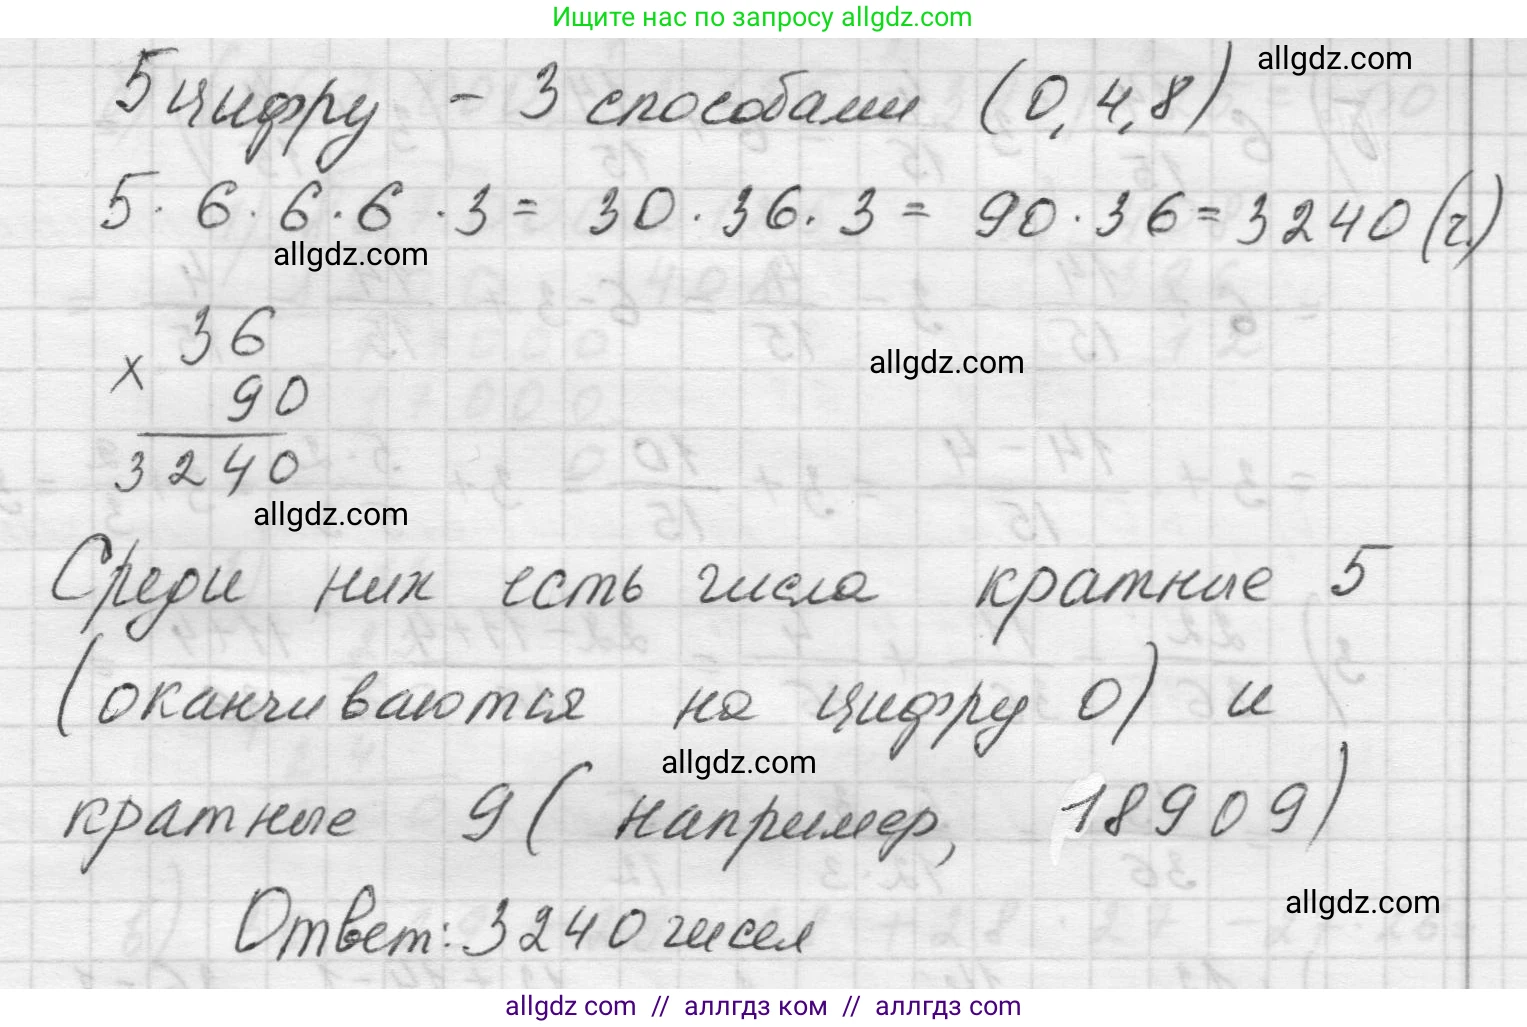 Ищите нас по запросу allgdz.com
allgdz.com
5 цифру - 3 способами (0, 4, 8)
5 · 6 · 6 · 6 · 3 = 30 · 36 · 3 = 90 · 36 = 3240 (ч.)
allgdz.com
× 36
90
3240
allgdz.com
allgdz.com
Среди них есть числа кратные 5
(оканчиваются на цифру 0) и
allgdz.com
кратные 9 (например, 18909)
allgdz.com
Ответ: 3240 чисел
allgdz.com // аллгдз ком // аллгдз.com